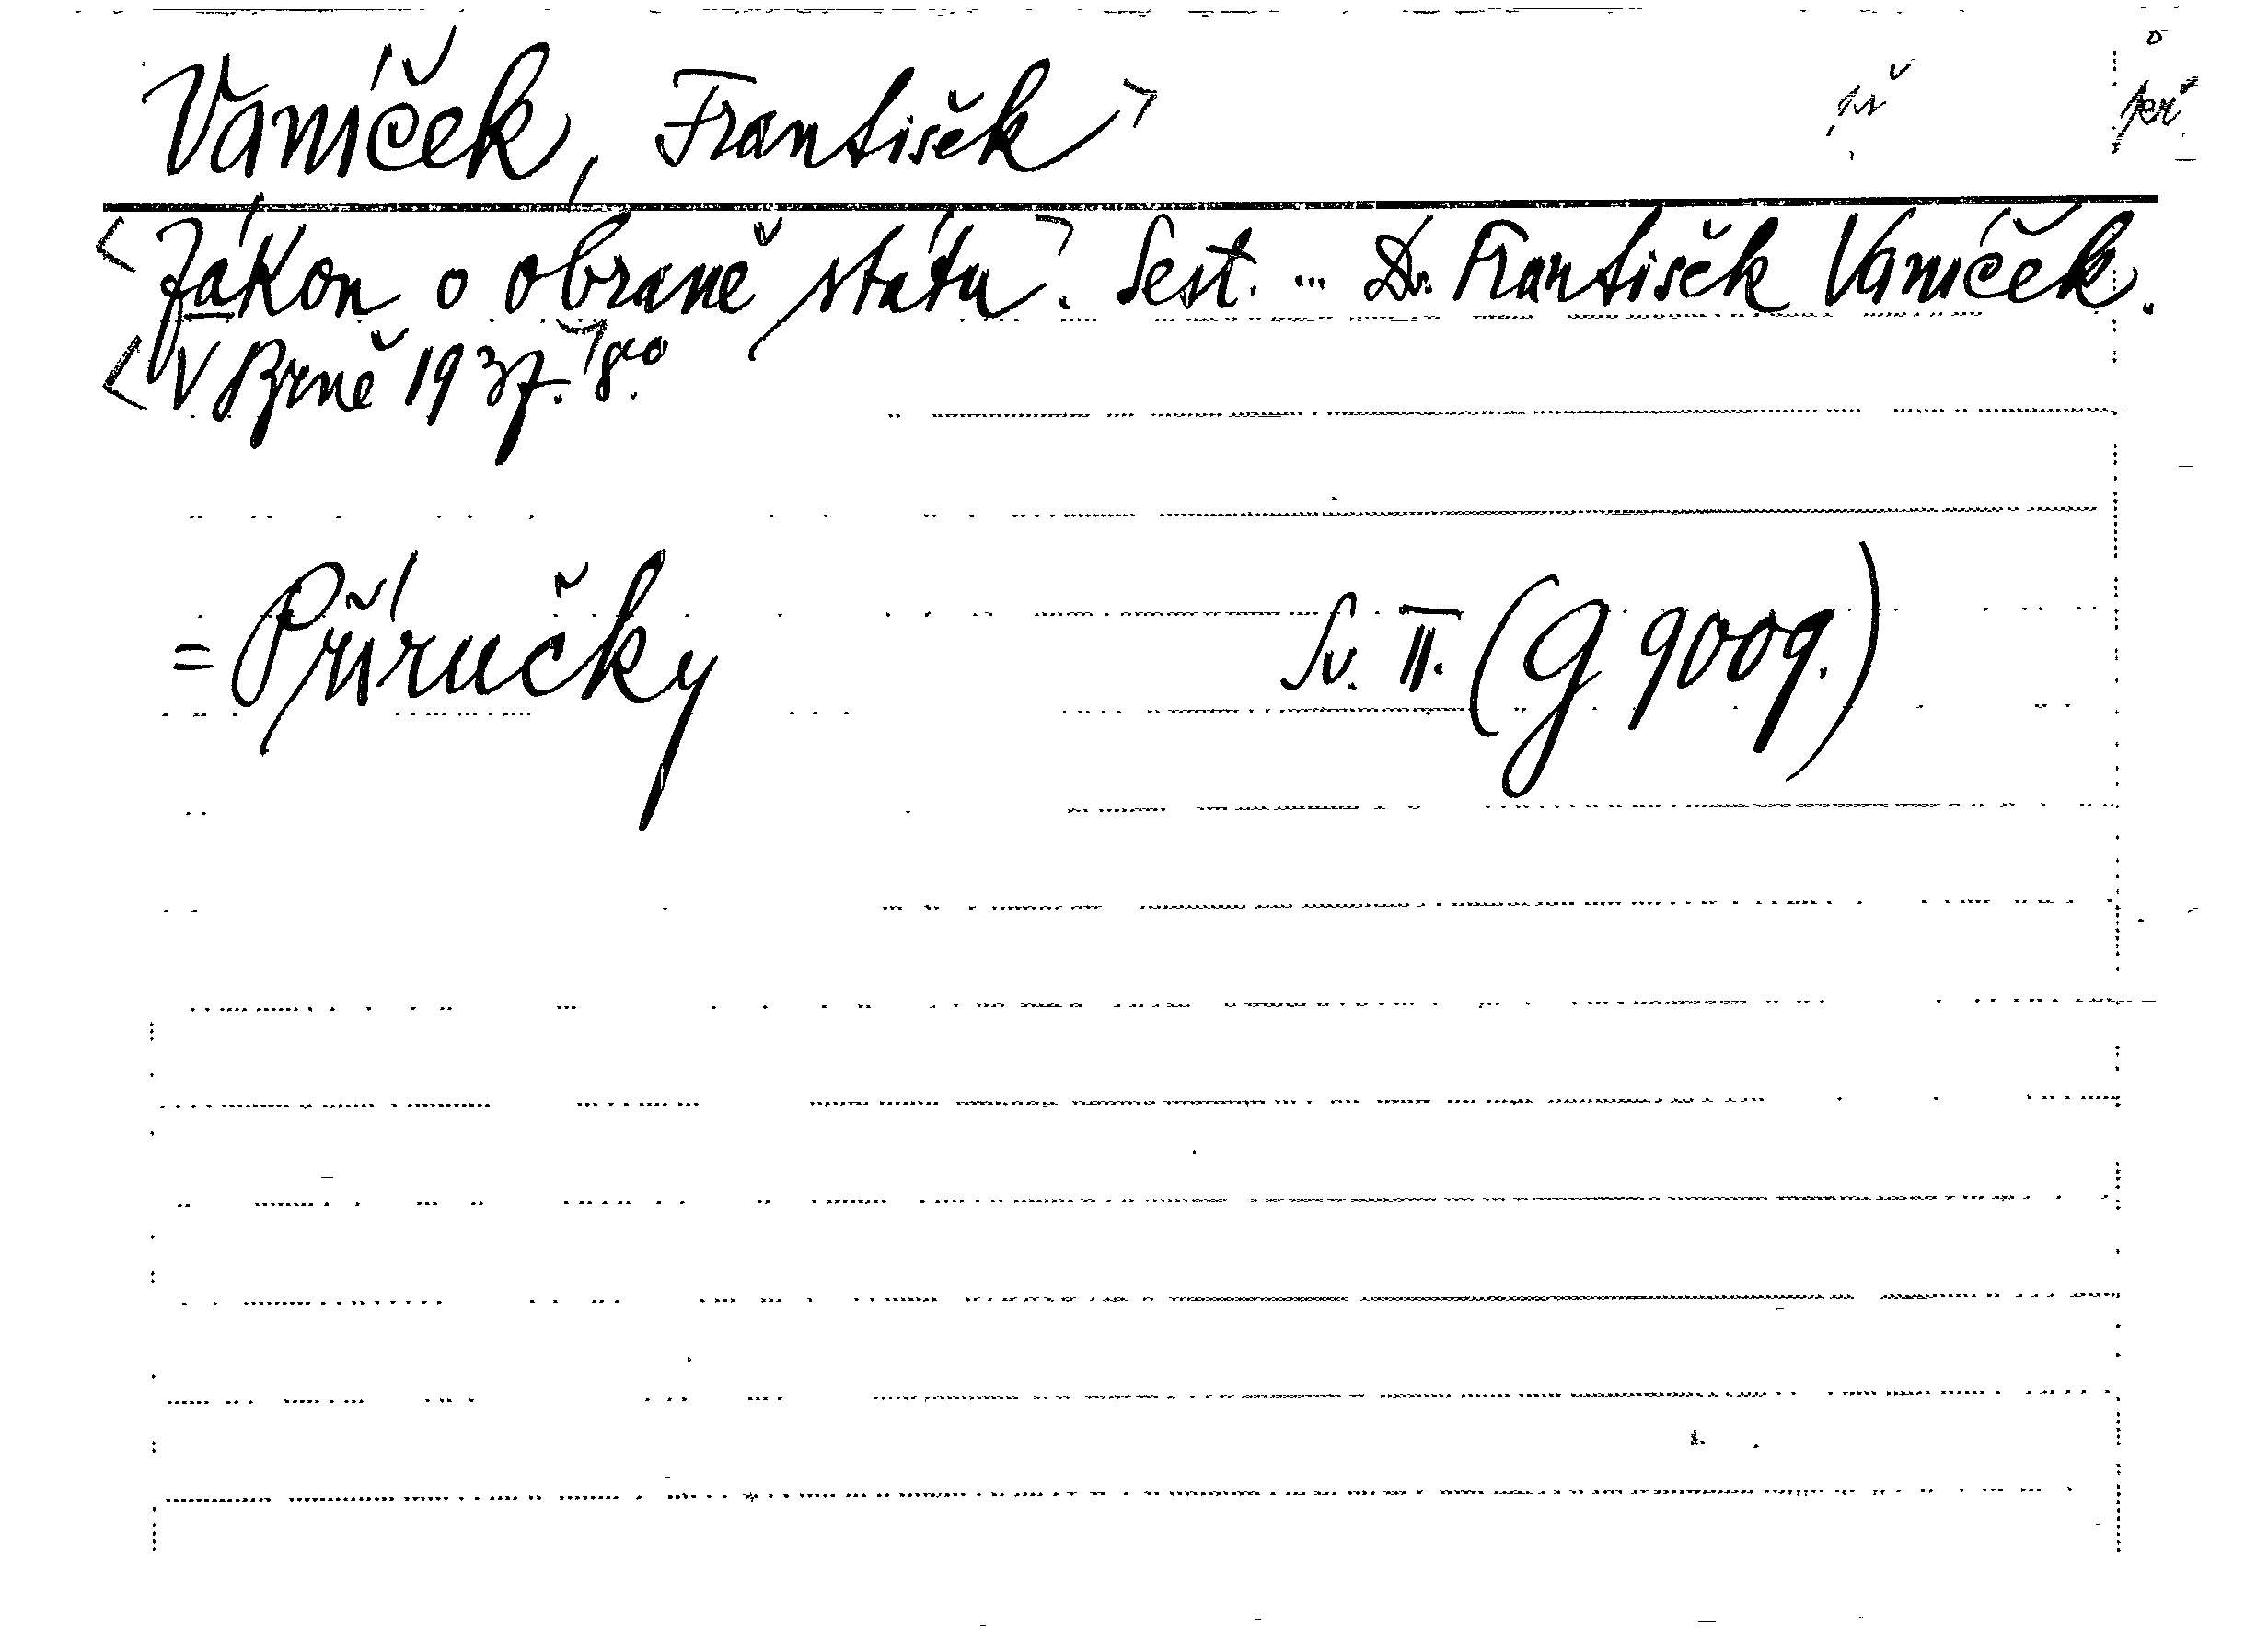 Vaníček, František
Zákon o obraně státu. Sest. ... Dr. František Vaníček.
V Brně 1937. 8°
= Příručky Sv. II. (G 9009.)